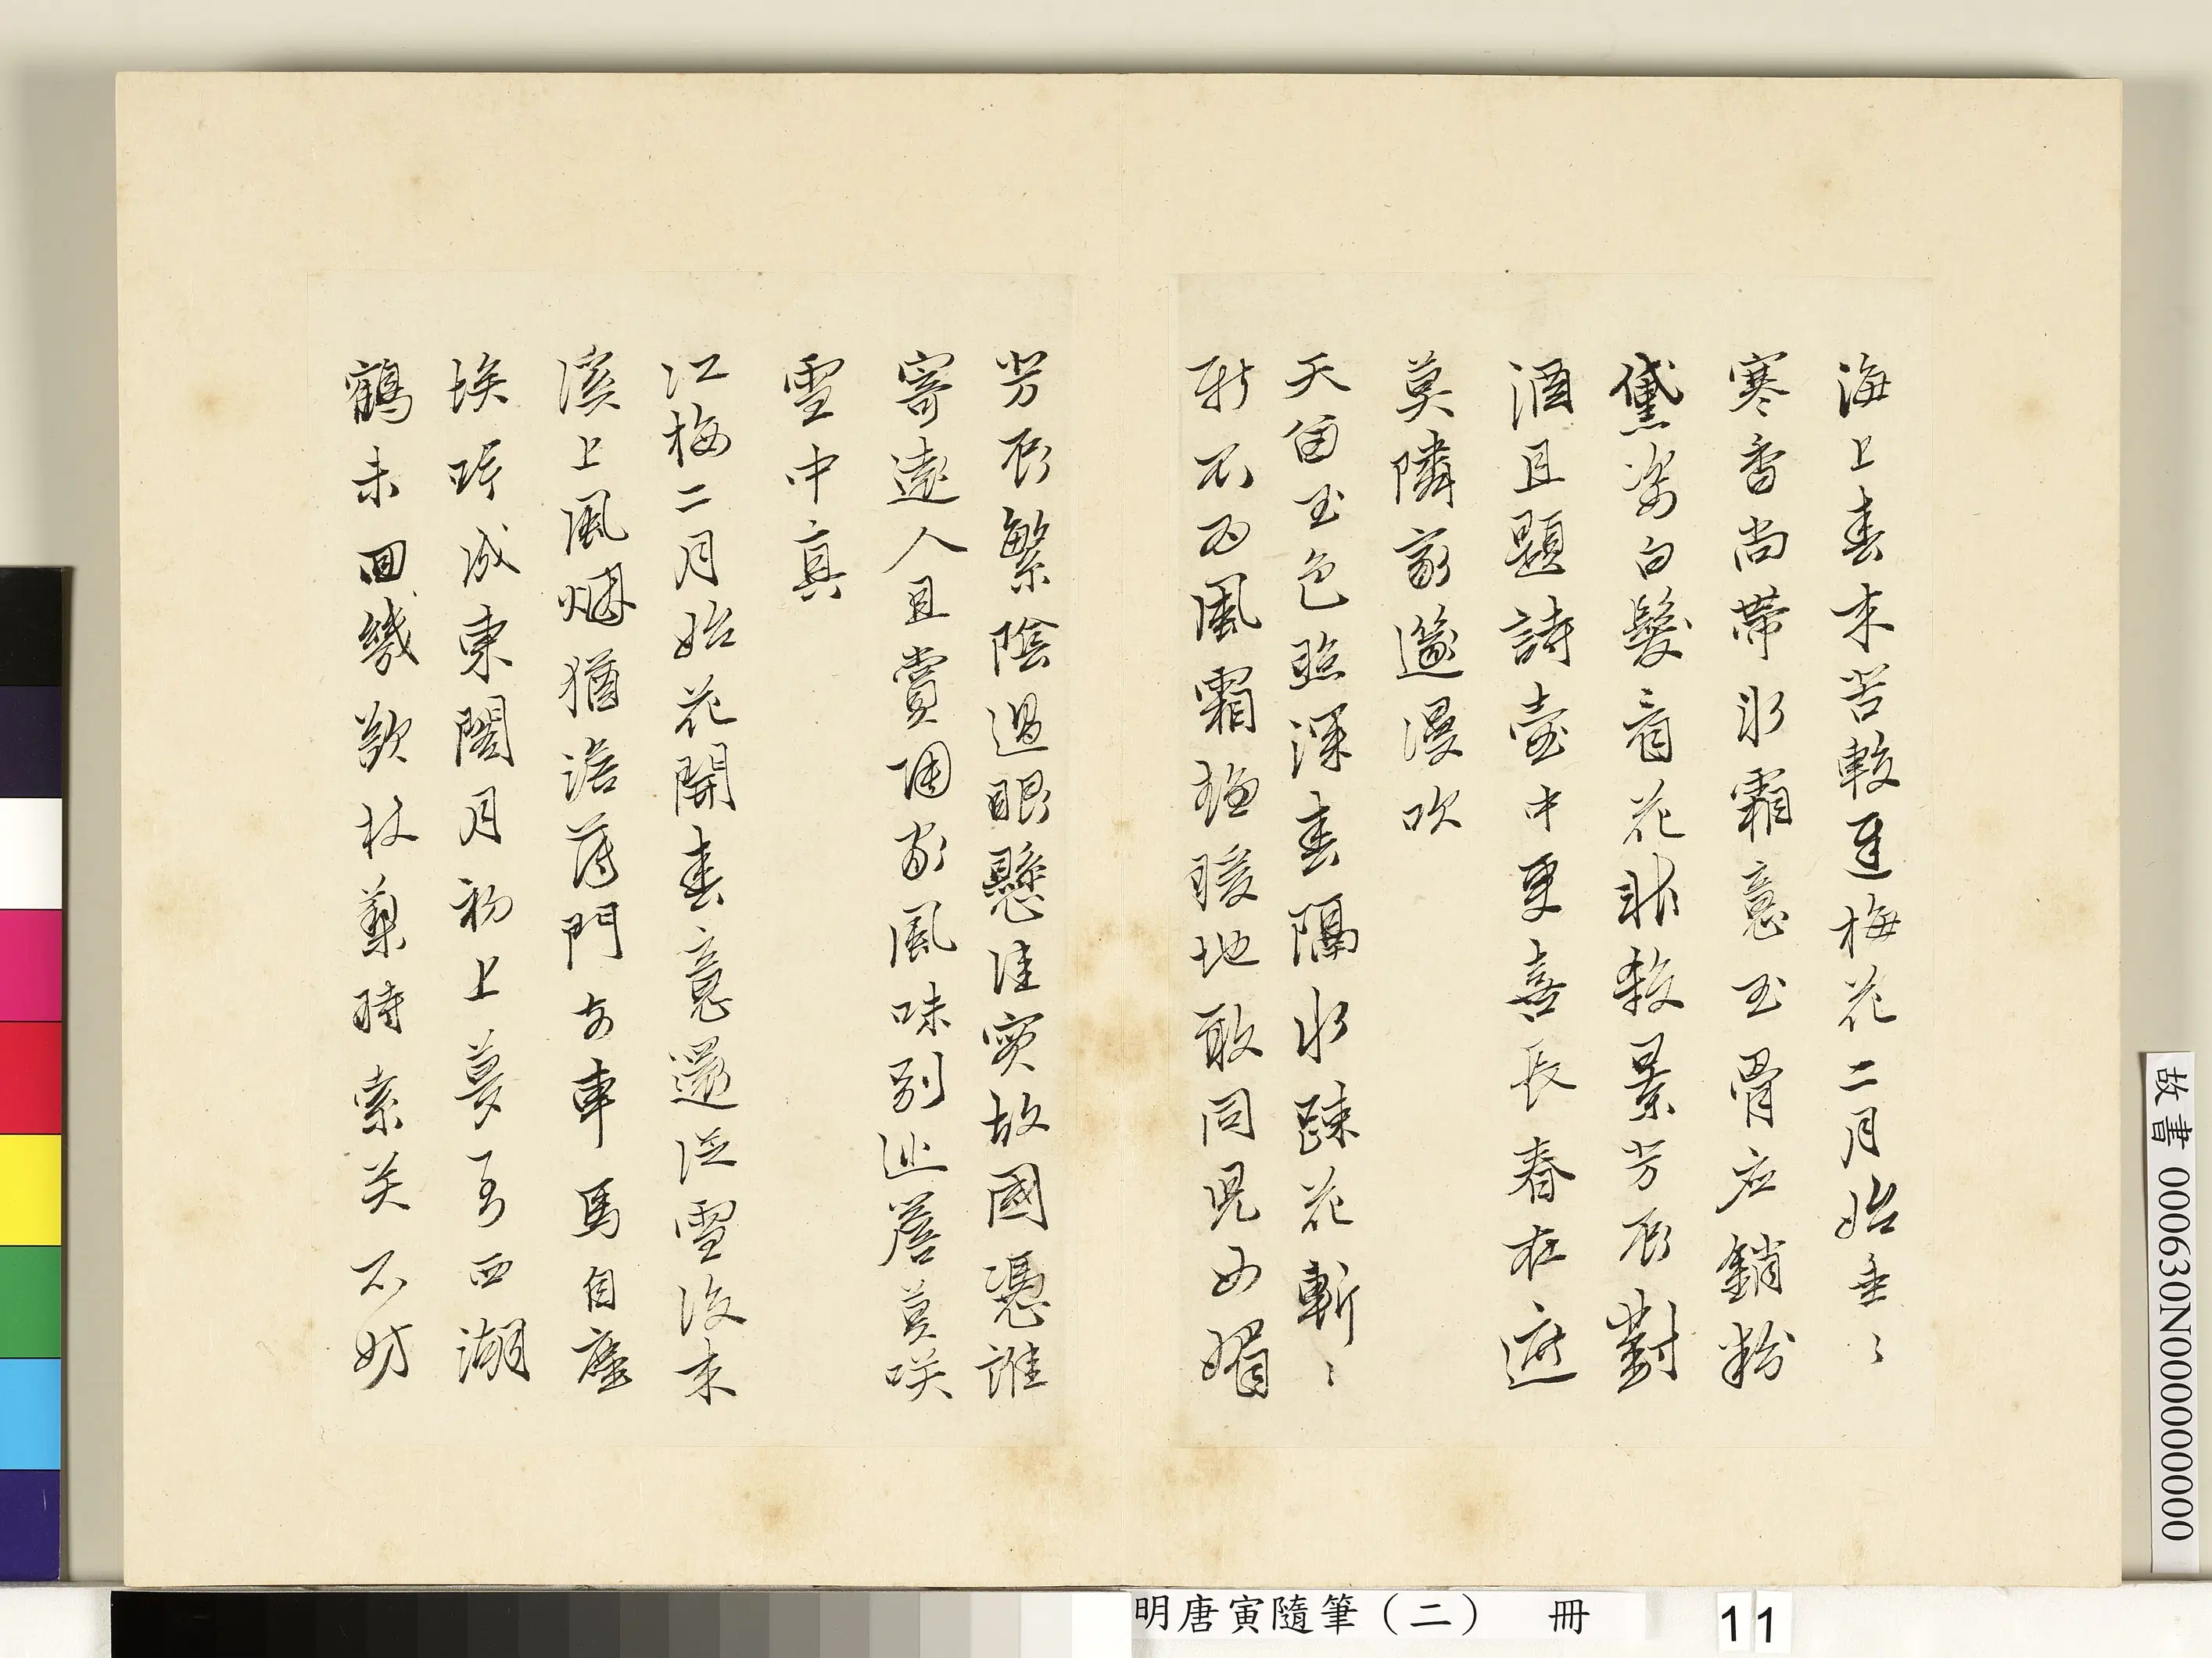 海上春來苦較遲梅花二月始垂〻
寒香尚帶冰霜意玉骨應銷粉
黛姿白髮看花非殺景芳辰對
酒且題詩壺中更喜長春在遮
莫隣家邃漫吹
天留玉色照深春隔水疎花嶄〻
新不為風霜移暖地敢同兒女媚
芳辰繁陰過眼懸佳實故國憑誰
寄遠人且賞調家風味別巡簷莫咲
雪中真
江梅二月始花開春意還從雪後來
溪上風烟猶澹蕩門前車馬自塵
埃吟成東閣月初上夢了西湖
鶴未回幾欲杖藜時索笑不妨
明唐寅隨筆（二） 冊 11
故書 000630N000000000